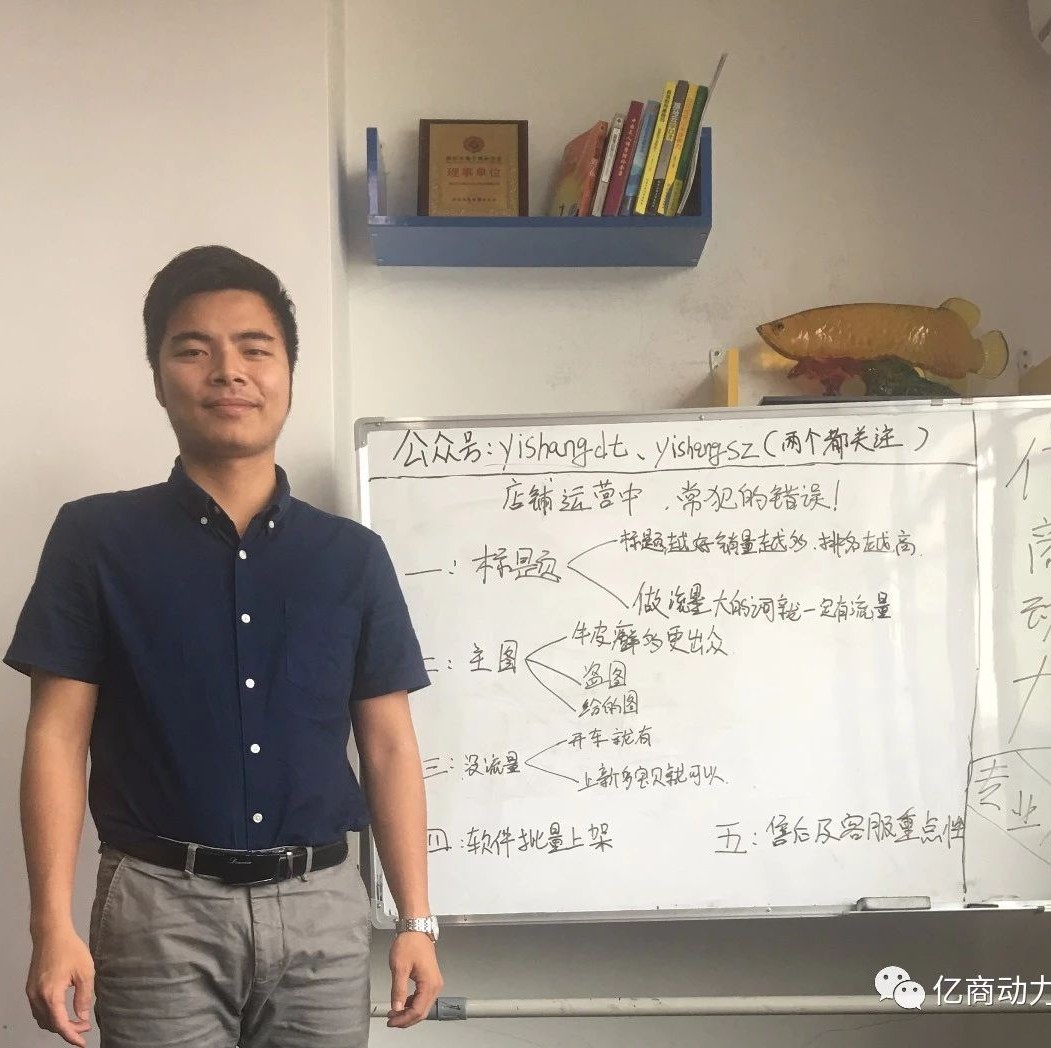 理事单位
公众号：yishangdt、yishangsz（两个都关注）
店铺运营中，常犯的错误！
一：标题
标题越好销量越多，排名越高.
做流量大的词就一定有流量
二：主图
牛皮癣多更出众
盗图
给的图
三：没流量
开车就有
上新多宝贝就可以.
四：软件批量上架
五：售后及客服重点性
商
动
力
专业
亿商动力